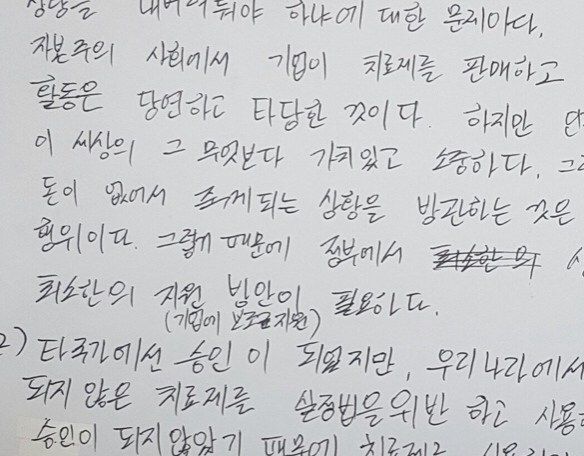 상황을 내버려둬야 하냐에 대한 문제이다.
자본주의 사회에서 기업이 치료제를 판매하고
활동은 당연하고 타당한 것이다. 하지만
이 세상의 그 무엇보다 가치있고 소중하다. 그
돈이 없어서 죽게되는 상황을 방관하는 것은
행위이다. 그렇기 때문에 정부에서 최소한의
최소한의 지원 방안이 필요하다.
(기업에 보조금지원)
2) 타국가에선 승인이 되었지만, 우리나라에서
되지 않은 치료제를 실정법을 위반 하고 사용
승인이 되지않았기 때문에 치료제로